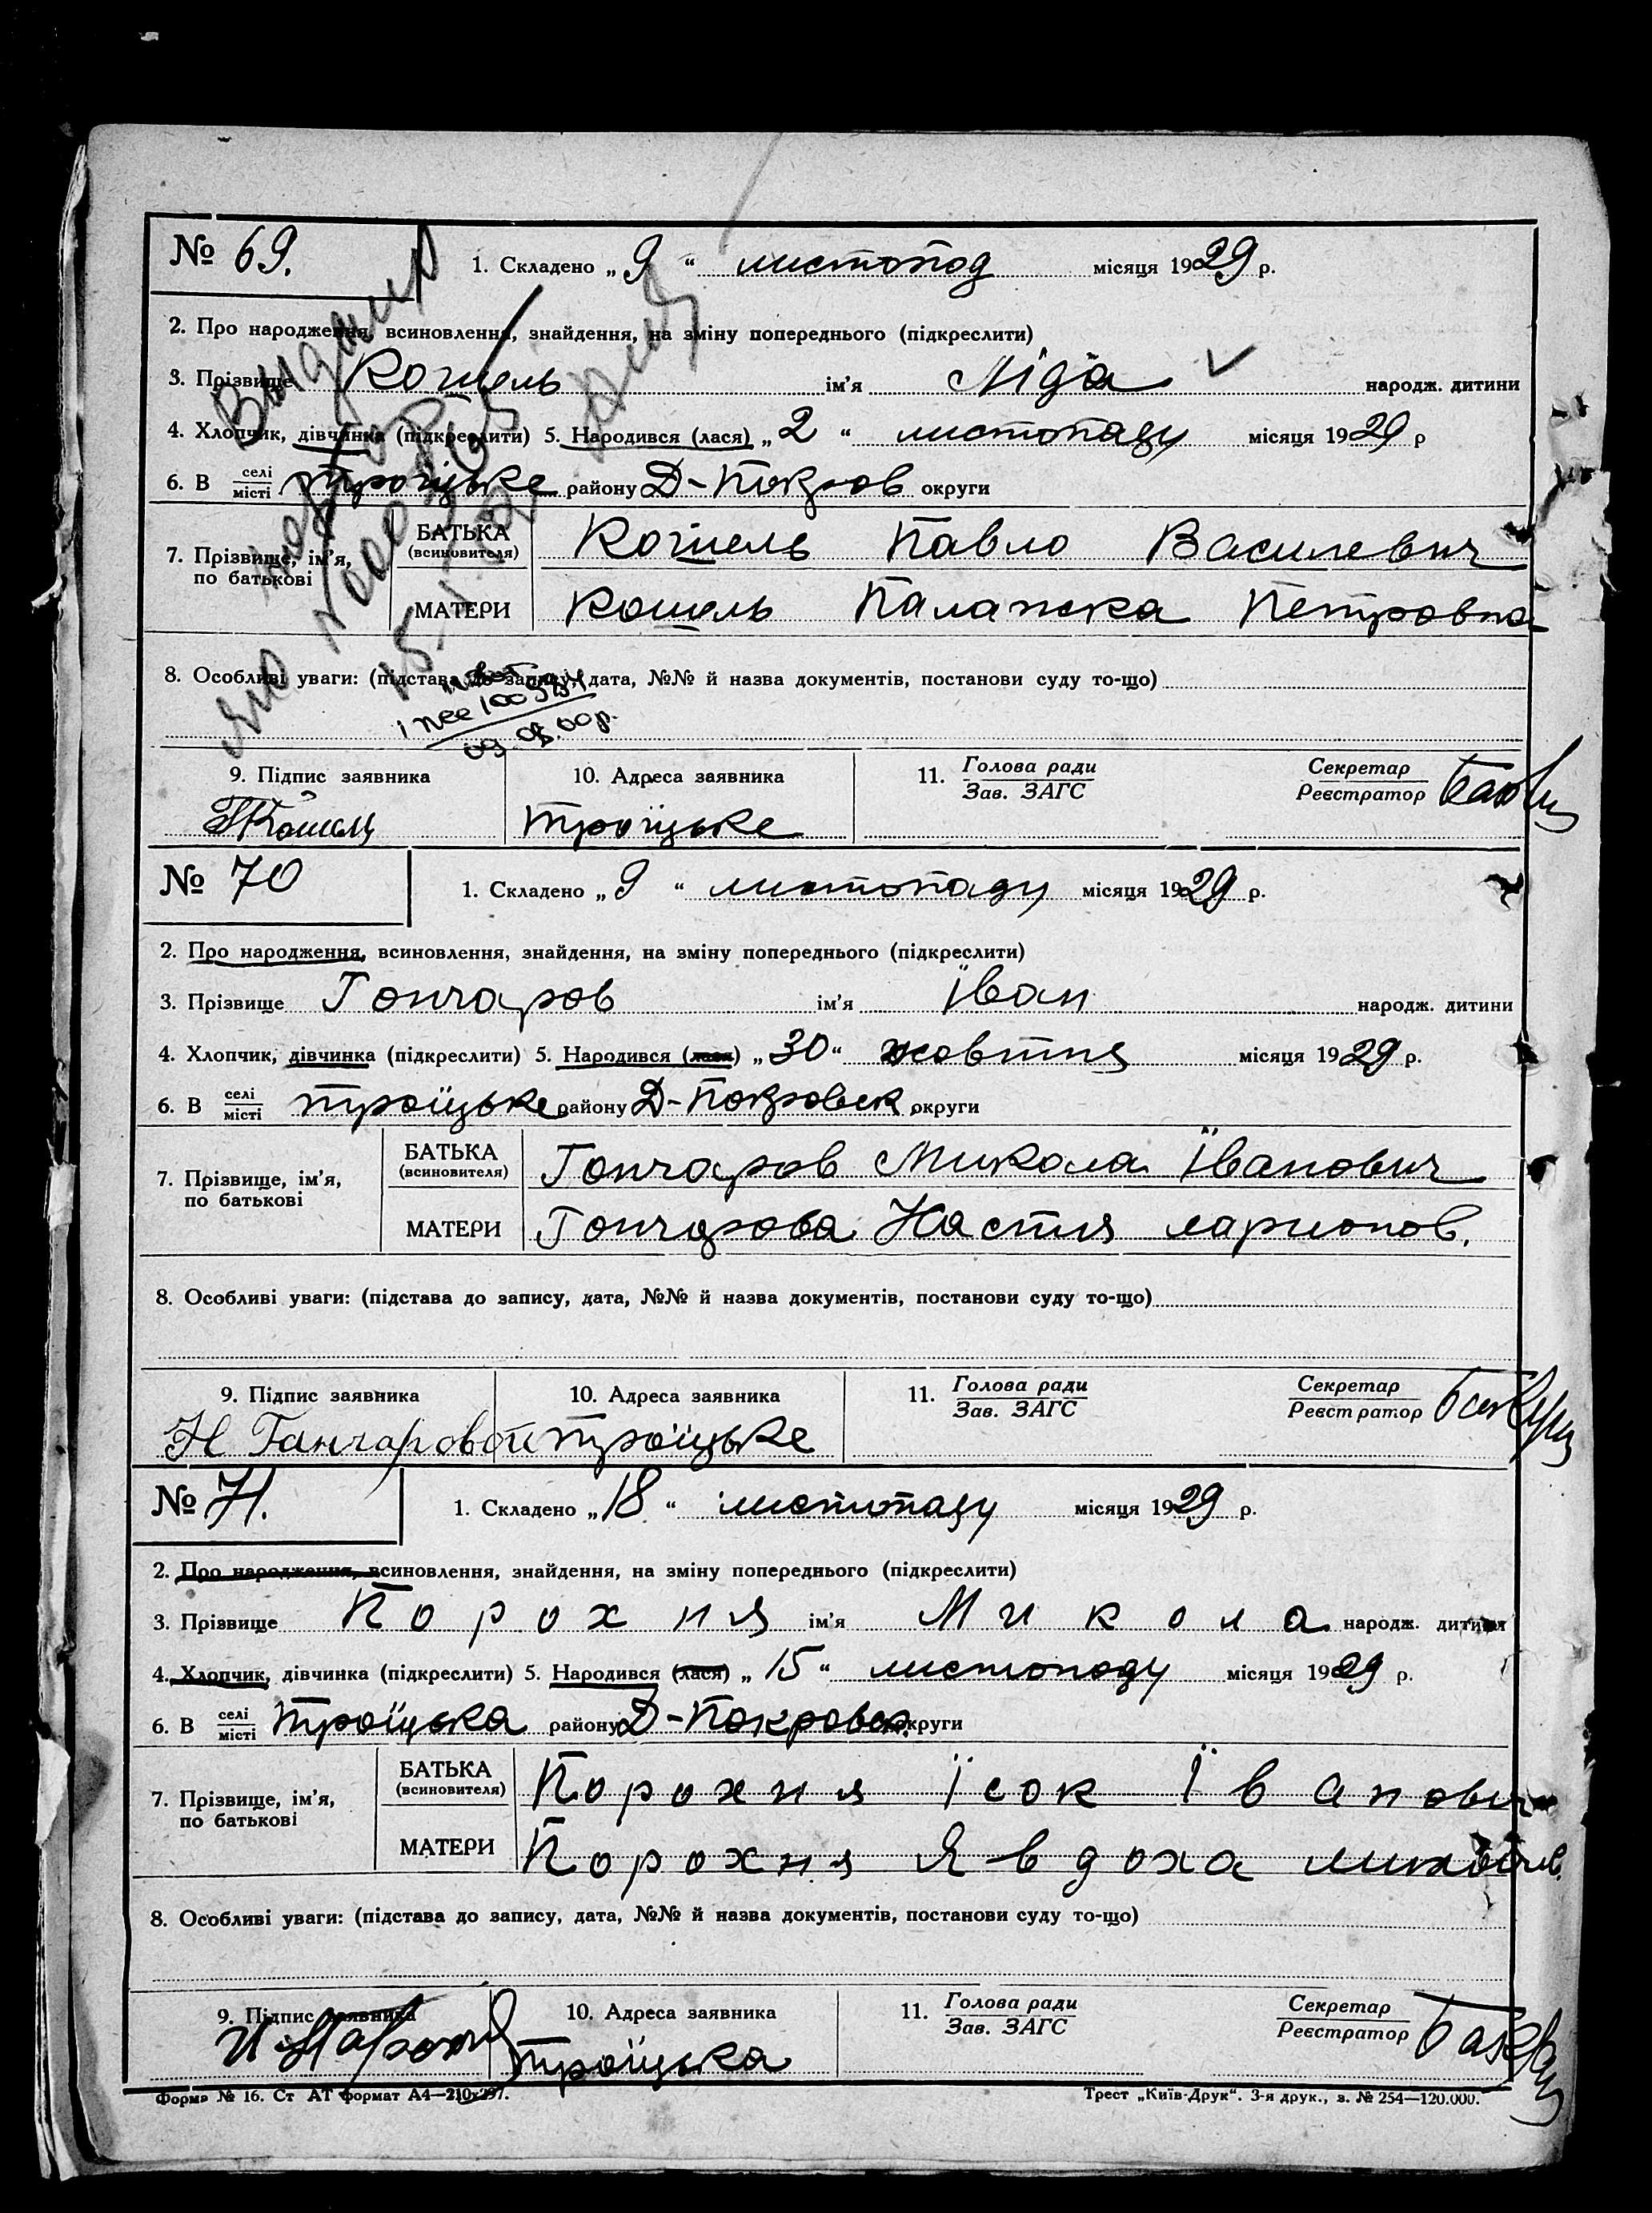 № 69.
1. Складено „9“ листопод місяця 1929 р.
2. Про народження, всиновлення, знайдення, на зміну попереднього (підкреслити)
3. Прізвище Кошель ім'я Ліда народж. дитини
4. Хлопчик, дівчинка (підкреслити) 5. Народився (лася) „2“ листопаду місяця 1929 р
6. В селі місті Троїцьке району Д-Покров округи
7. Прізвище, ім'я, по батькові
БАТЬКА (всиновителя) Кошель Павло Василевич
МАТЕРИ Кошель Палажка Петровна
8. Особливі уваги: (підстава до запису, дата, №№ й назва документів, постанови суду то-що)
9. Підпис заявника 10. Адреса заявника 11. Голова ради Зав. ЗАГС Секретар Реєстратор
Троїцьке
№ 70
1. Складено „9“ листопаду місяця 1929 р.
2. Про народження, всиновлення, знайдення, на зміну попереднього (підкреслити)
3. Прізвище Гончаров ім'я Іван народж. дитини
4. Хлопчик, дівчинка (підкреслити) 5. Народився (лася) „30“ жовтня місяця 1929 р.
6. В селі місті Троїцьке району Д-Покровск округи
7. Прізвище, ім'я, по батькові
БАТЬКА (всиновителя) Гончаров Микола Їванович
МАТЕРИ Гончарова Настя ларионов.
8. Особливі уваги: (підстава до запису, дата, №№ й назва документів, постанови суду то-що)
9. Підпис заявника 10. Адреса заявника 11. Голова ради Зав. ЗАГС Секретар Реєстратор
Н Ганчаровой Троїцьке
№ 71.
1. Складено „18“ листопаду місяця 1929 р.
2. Про народження, всиновлення, знайдення, на зміну попереднього (підкреслити)
3. Прізвище Порохня ім'я Микола народж. дитини
4. Хлопчик, дівчинка (підкреслити) 5. Народився (лася) „15“ листоподу місяця 1929 р.
6. В селі місті Троїцька району Д-Покровск. округи
7. Прізвище, ім'я, по батькові
БАТЬКА (всиновителя) Порохня Їсок Їванович
МАТЕРИ Порохня Явдоха
8. Особливі уваги: (підстава до запису, дата, №№ й назва документів, постанови суду то-що)
9. Підпис заявника 10. Адреса заявника 11. Голова ради Зав. ЗАГС Секретар Реєстратор
Троїцька
Форма № 16. Ст АТ формат А4—210x297. Трест „Київ-Друк“. 3-я друк., з. № 254—120.000.